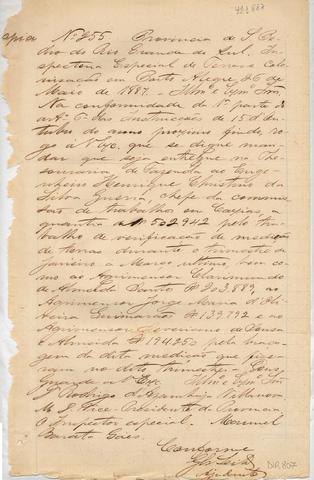 Copia
Nº 255 Provincia de S. Pe-
dro do Rio Grande do Sul. Ins-
pectoria Especial de Terras e Colo-
nisação em Porto Alegre, 26 de
Maio de 1887. - Illmo e Exmo Snr.
Na conformidade da 1ª parte do
artº 6 das Instrucções de 15 d'Ou-
tubro do anno proximo findo, ro-
go a Vª Exª que se digne man-
dar que seja entregue na The-
souraria de Fazenda ao Enge-
nheiro Henrique Christino da
Silva, chefe da commis-
são de trabalho em Caxias, a
quantia de 502942 pelo tra-
balho de verificação de medição
de terras durante o trimestre de
Janeiro a Março ultimo, bem co-
mo ao Agrimensor Clarimundo
de Almeida Santos 203,889, ao
Agrimensor Jorge Maria d'Oli-
veira Guimarães 139,792 e ao
Agrimensor Severiano de Souza
e Almeida 194250 pela
da dita medição que fize-
ram no dito trimestre - Deus
Guarde a Vª Exª Illmo e Exmo Snr.
Dr. Rodrigo d'Azambuja Villanova
M. D. Vice-Presidente da Provincia
O Inspector especial. Manuel
Barata Goes.
Conforme
Ajudante
DIR.807